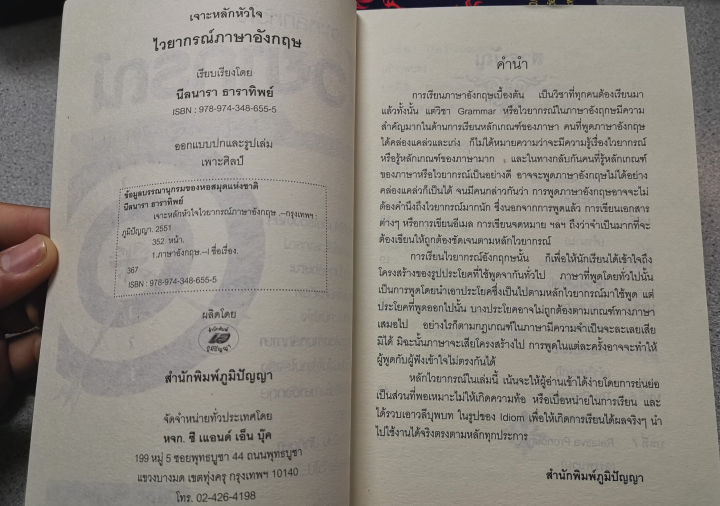 เจาะหลักหัวใจ
ไวยากรณ์ภาษาอังกฤษ
เรียบเรียงโดย
นีลนารา ธาราทิพย์
ISBN : 978-974-348-655-5
ออกแบบปกและรูปเล่ม
เพาะศิลป์
ข้อมูลบรรณานุกรมของหอสมุดแห่งชาติ
นีลนารา ธาราทิพย์
เจาะหลักหัวใจไวยากรณ์ภาษาอังกฤษ .–กรุงเทพฯ :
ภูมิปัญญา. 2551
352 หน้า.
1.ภาษาอังกฤษ.–I ชื่อเรื่อง.
367
ISBN : 978-974-348-655-5
ผลิตโดย
สำนักพิมพ์
ภูมิปัญญา
สำนักพิมพ์ภูมิปัญญา
จัดจำหน่ายทั่วประเทศโดย
หจก. ซี แเอนด์ เอ็น บุ๊ค
199 หมู่ 5 ซอยพุทธบูชา 44 ถนนพุทธบูชา
แขวงบางมด เขตทุ่งครุ กรุงเทพฯ 10140
โทร. 02-426-4198
คำนำ
การเรียนภาษาอังกฤษเบื้องต้น เป็นวิชาที่ทุกคนต้องเรียนมา
แล้วทั้งนั้น แต่วิชา Grammar หรือไวยากรณ์ในภาษาอังกฤษมีความ
สำคัญมากในด้านการเรียนหลักเกณฑ์ของภาษา คนที่พูดภาษาอังกฤษ
ได้คล่องแคล่วและเก่ง ก็ไม่ได้หมายความว่าจะมีความรู้เรื่องไวยากรณ์
หรือรู้หลักเกณฑ์ของภาษามาก และในทางกลับกันคนที่รู้หลักเกณฑ์
ของภาษาหรือไวยากรณ์เป็นอย่างดี อาจจะพูดภาษาอังกฤษไม่ได้อย่าง
คล่องแคล่วก็เป็นได้ จนมีคนกล่าวกันว่า การพูดภาษาอังกฤษอาจจะไม่
ต้องคำนึงถึงไวยากรณ์มากนัก ซึ่งนอกจากการพูดแล้ว การเขียนเอกสาร
ต่างๆ หรือการเขียนอีเมล การเขียนจดหมาย ฯลฯ ถึงว่าจำเป็นมากที่จะ
ต้องเขียนให้ถูกต้องชัดเจนตามหลักไวยากรณ์
การเรียนไวยากรณ์อังกฤษนั้น ก็เพื่อให้นักเรียนได้เข้าใจถึง
โครงสร้างของรูปประโยคที่ใช้พูดจากันทั่วไป ภาษาที่พูดโดยทั่วไปนั้น
เป็นการพูดโดยนำเอาประโยคซึ่งเป็นไปตามหลักไวยากรณ์มาใช้พูด แต่
ประโยคที่พูดออกไปนั้น บางประโยคอาจไม่ถูกต้องตามเกณฑ์ทางภาษา
เสมอไป อย่างไรก็ตามกฎเกณฑ์ในภาษามีความจำเป็นจะละเลยเสีย
มิได้ มิฉะนั้นภาษาจะเสียโครงสร้างไป การพูดในแต่ละครั้งอาจจะทำให้
ผู้พูดกับผู้ฟังเข้าใจไม่ตรงกันได้
หลักไวยากรณ์ในเล่มนี้ เน้นจะให้ผู้อ่านเข้าได้ง่ายโดยการย่นย่อ
เป็นส่วนที่พอเหมาะไม่ให้เกิดความท้อ หรือเบื่อหน่ายในการเรียน และ
ได้รวบเอาวลีบุพบท ในรูปของ Idiom เพื่อให้เกิดการเรียนได้ผลจริงๆ นำ
ไปใช้งานได้จริงตรงตามหลักทุกประการ
สำนักพิมพ์ภูมิปัญญา